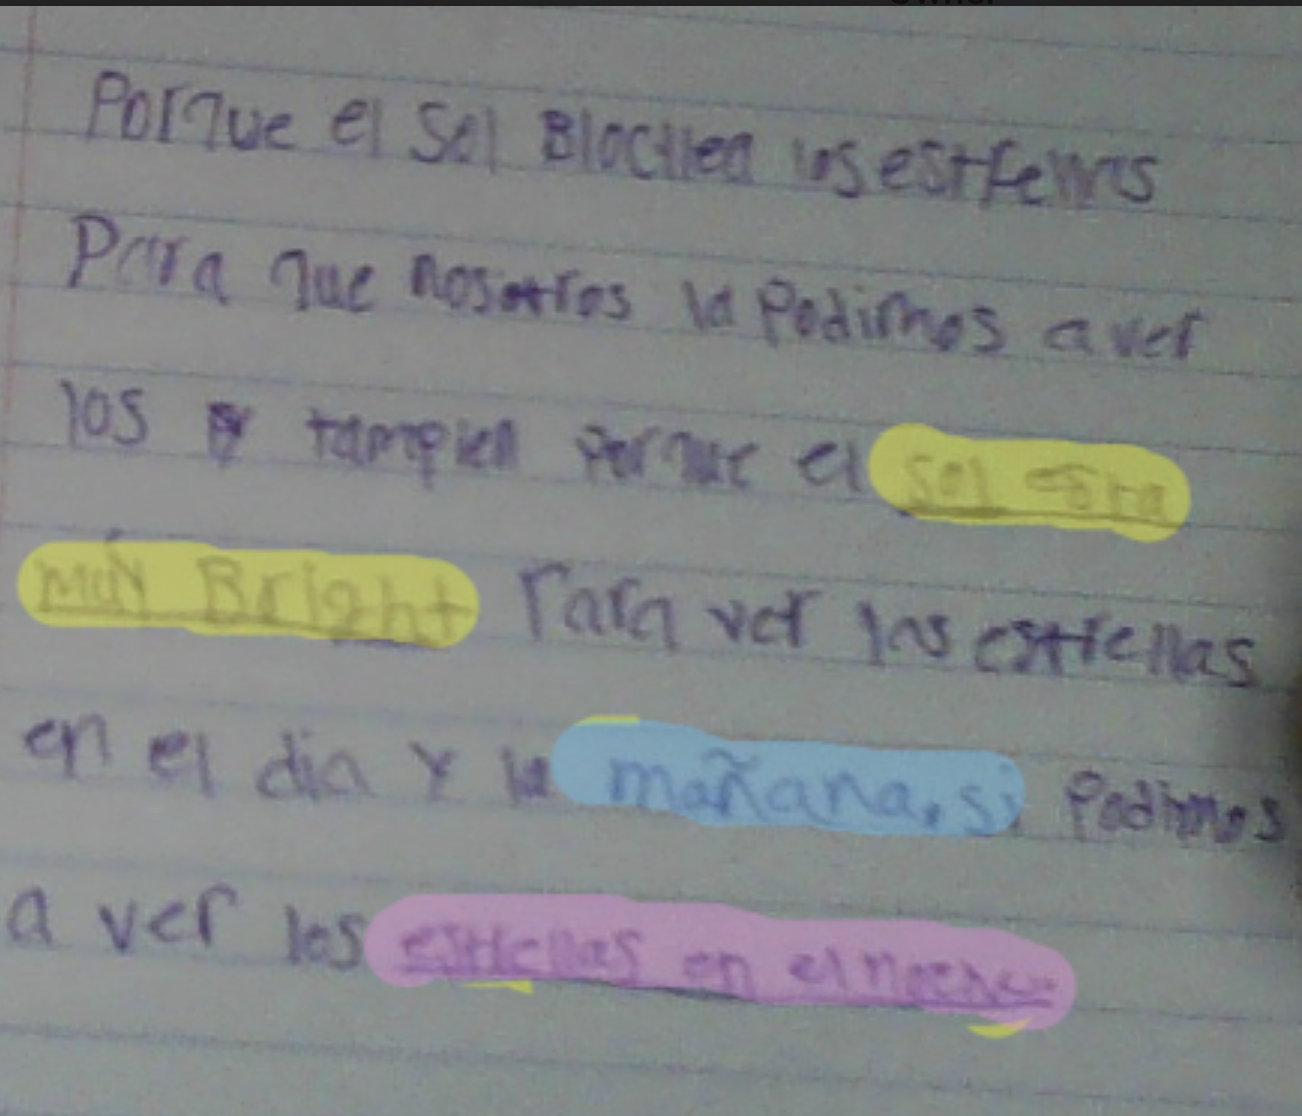 Porque el Sol Blocllea los estrellas
Para que nosotros la Podimos a ver
los y tampien porque el sol esta
muy Bright Para ver las estrellas
en el dia y la mañana, si Podimos
a ver los estrellas en el noche